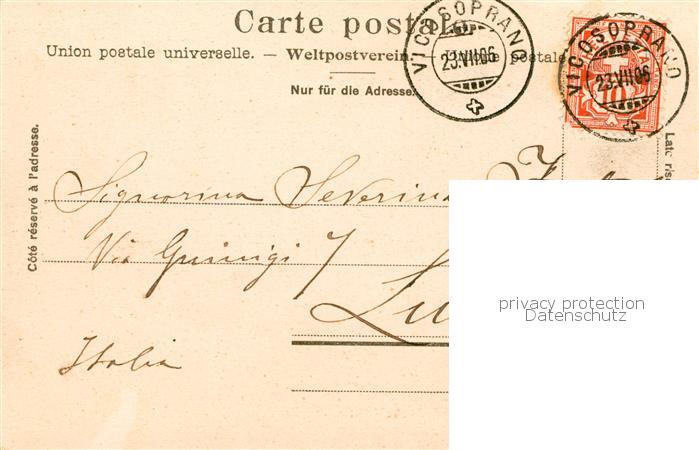 Carte postale.
Union postale universelle. — Weltpostverein. — postale
Nur für die Adresse.
VICOSOPRANO
23.VII.06
VICOSOPRANO
23.VII.06
10
Côté réservé à l'adresse.
Lato ris
Signorina Severina
Via Guinigi 7
Lu
Italia
privacy protection
Datenschutz